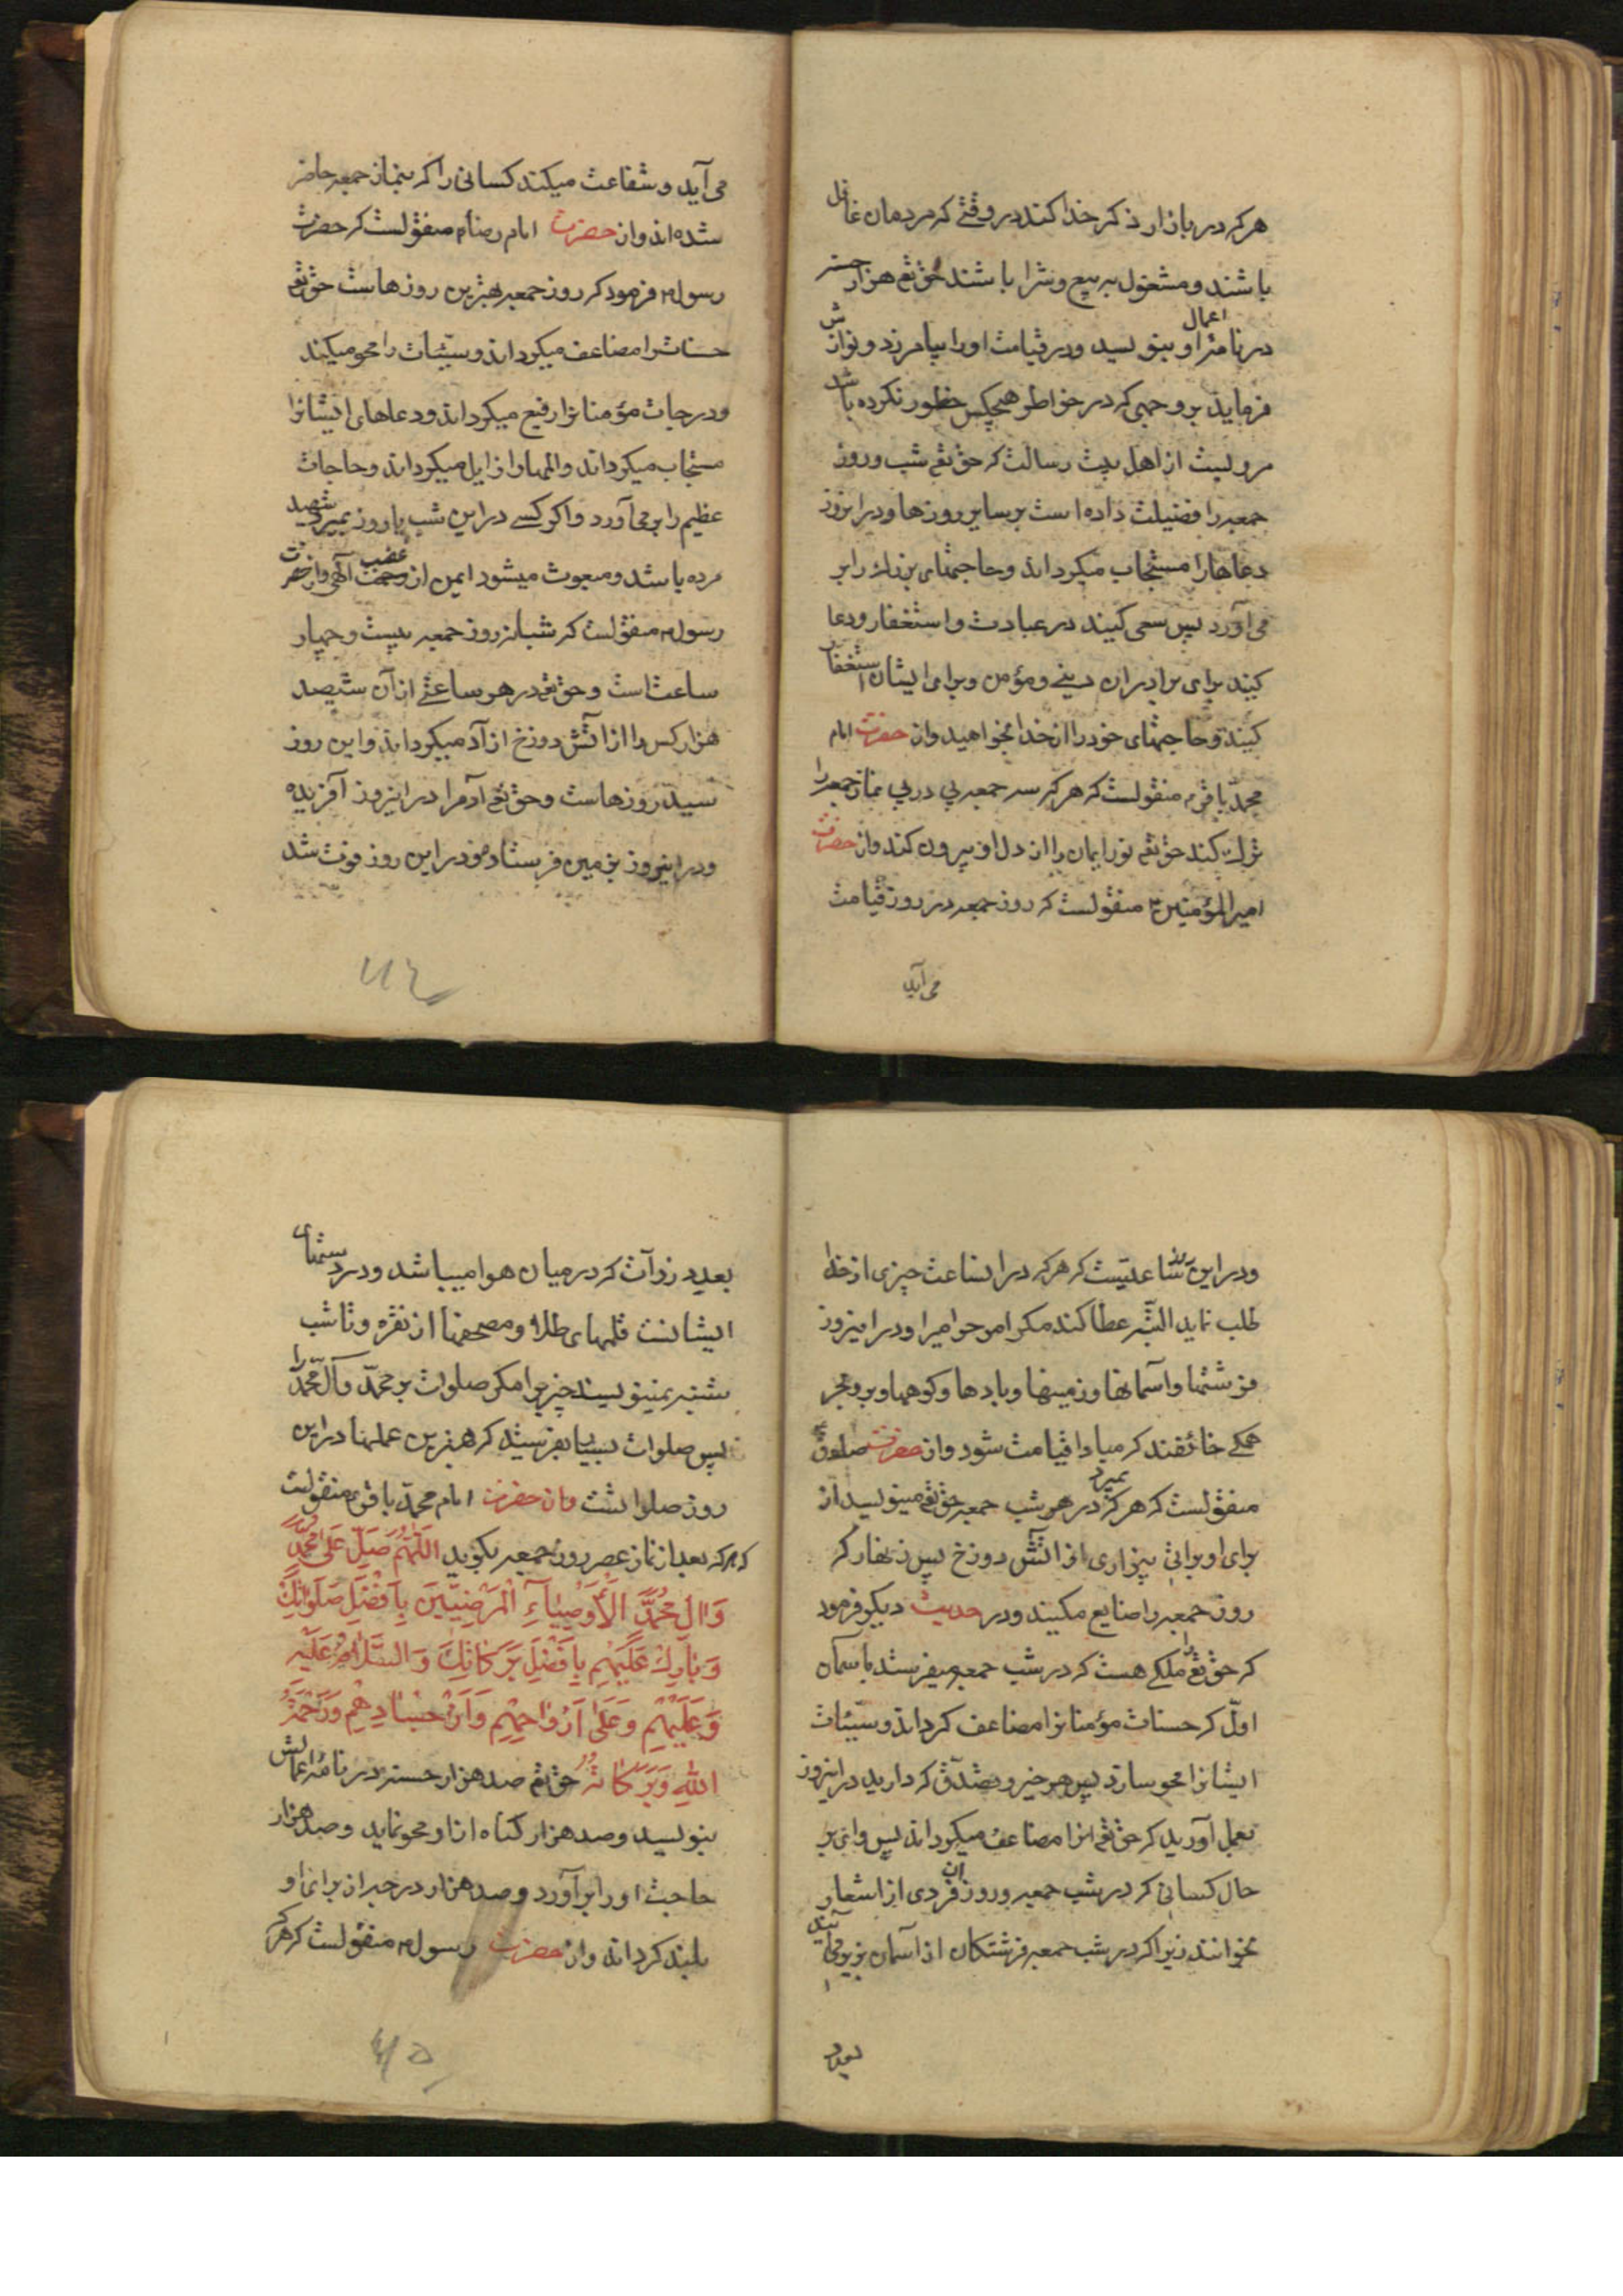 هر که در بازار ذکر خدا کند در وقتی که مردمان غافل
باشند و مشغول به بیع و شرا باشند حق تع هزار حسنه
در نامهٔ اعمال او بنویسد و در قیامت او را بیامرزد و نوازش
فرماید بر وجهی که در خواطر هیچکس خطور نکرده باشد
مرویست از اهل بیت رسالت که حق تع شب و روز
جمعه را فضیلت داده است بر سایر روزها و در اینروز
دعاها را مستجاب میکرداند و حاجتهای بزرک را بر
می آورد پس سعی کنید در عبادت و استغفار و دعا
کنید برای برادران دینی و مؤمن و برای ایشان استغفار
کنید و حاجتهای خود را از خدا بخواهید و از حضرت امام
محمد باقر ع منقولست که هر که سه جمعه پی در پی نماز جمعه را
ترک کند حق تع نور ایمان را از دل او بیرون کند و از حضرت
امیرالمؤمنین ع منقولست که روز جمعه در روز قیامت
می آید
می آید و شفاعت میکند کسانی را که بنماز جمعه حاضر
شده اند و از حضرت امام رضا ع منقولست که حضرت
رسول ص فرمود که روز جمعه بهترین روزهاست حق تع
حسنات را مضاعف میکرداند و سیّئات را محو میکند
و درجات مؤمنانرا رفیع میکرداند و دعاهای ایشانرا
مستجاب میکرداند و المها را زایل میکرداند و حاجات
عظیم را بر می آورد و اکر کسی در این شب یا روز بمیرد شهید
مرده باشد و مبعوث میشود ایمن از غضب آلهی و از حضرت
رسول ص منقولست که شبانه روز جمعه بیست و چهار
ساعت است و حق تع در هر ساعتی از آن ششصد
هزار کس را از آتش دوزخ ازآد میکرداند و این روز
سید روزهاست و حق تع آدم را در اینروز آفریده
و در اینروز بزمین فرستاد و در این روز فوت شد
۲۱۴
و در این روز ساعتیست که هر که در انساعت چیزی از خدا
طلب نماید البتّه عطا کند مکر امر حرامیرا و در اینروز
فرشتها و آسمانها و زمینها و بادها و کوهها و بر و بحر
همکی خائفند که مبادا قیامت شود و از حضرت صادق ع
منقولست که هر که بمیرد در هر شب جمعه حق تع مینویسد از
برای او براتی بیزاری از آتش دوزخ پس زنهار که
روز جمعه را ضایع مکنید و در حدیث دیکر فرمود
که حق تع را ملکی هست که در شب جمعه میفرستد باسمان
اوّل که حسنات مؤمنانرا مضاعف کرداند و سیّئات
ایشانرا محو سازد پس هر خیر و تصدّق که دارید در اینروز
بعمل آورید که حق تع انرا مضاعف میکرداند پس وای بر
حال کسانی که در شب جمعه و روز ان فردی از اشعار
بخوانند زیرا که در شب جمعه فرشتکان از آسمان بزیر می آیند
بعدد
بعدد ذرّات که در میان هوا میباشد و در دستهای
ایشانست قلمهای طلا و مصحفها از نقره و تا شب
شنبه نمینویسند چیزیرا مکر صلوات بر محمّد و آل محمّد را
پس صلوات بسیار بفرستید که بهترین عملها در این
روز صلواتست و از حضرت امام محمّد باقر ع منقولست
که هر که بعد از نماز عصر روز جمعه بکوید اَللّٰهُمَّ صَلِّ عَلٰی مُحَمَّدٍ
وَ اٰلِ مُحَمَّدٍ الْاَوْصِیآءِ الْمَرْضِیّینَ بِاَفْضَلِ صَلَوٰاتِکَ
وَ بٰارِکْ عَلَیْهِمْ بِاَفْضَلِ بَرَکٰاتِکَ وَ السَّلٰامُ عَلَیْهِ
وَ عَلَیْهِمْ وَ عَلٰی اَرْوٰاحِهِمْ وَ اَجْسٰادِهِمْ وَ رَحْمَةُ
اللّٰهِ وَ بَرَکٰاتُهُ حق تع صد هزار حسنه در نامهٔ اعمالش
بنویسد و صد هزار کناه از او محو نماید و صد هزار
حاجت او را برآورد و صد هزار درجه از برای او
بلند کرداند و از حضرت رسول ص منقولست که هر که
۲۱۵